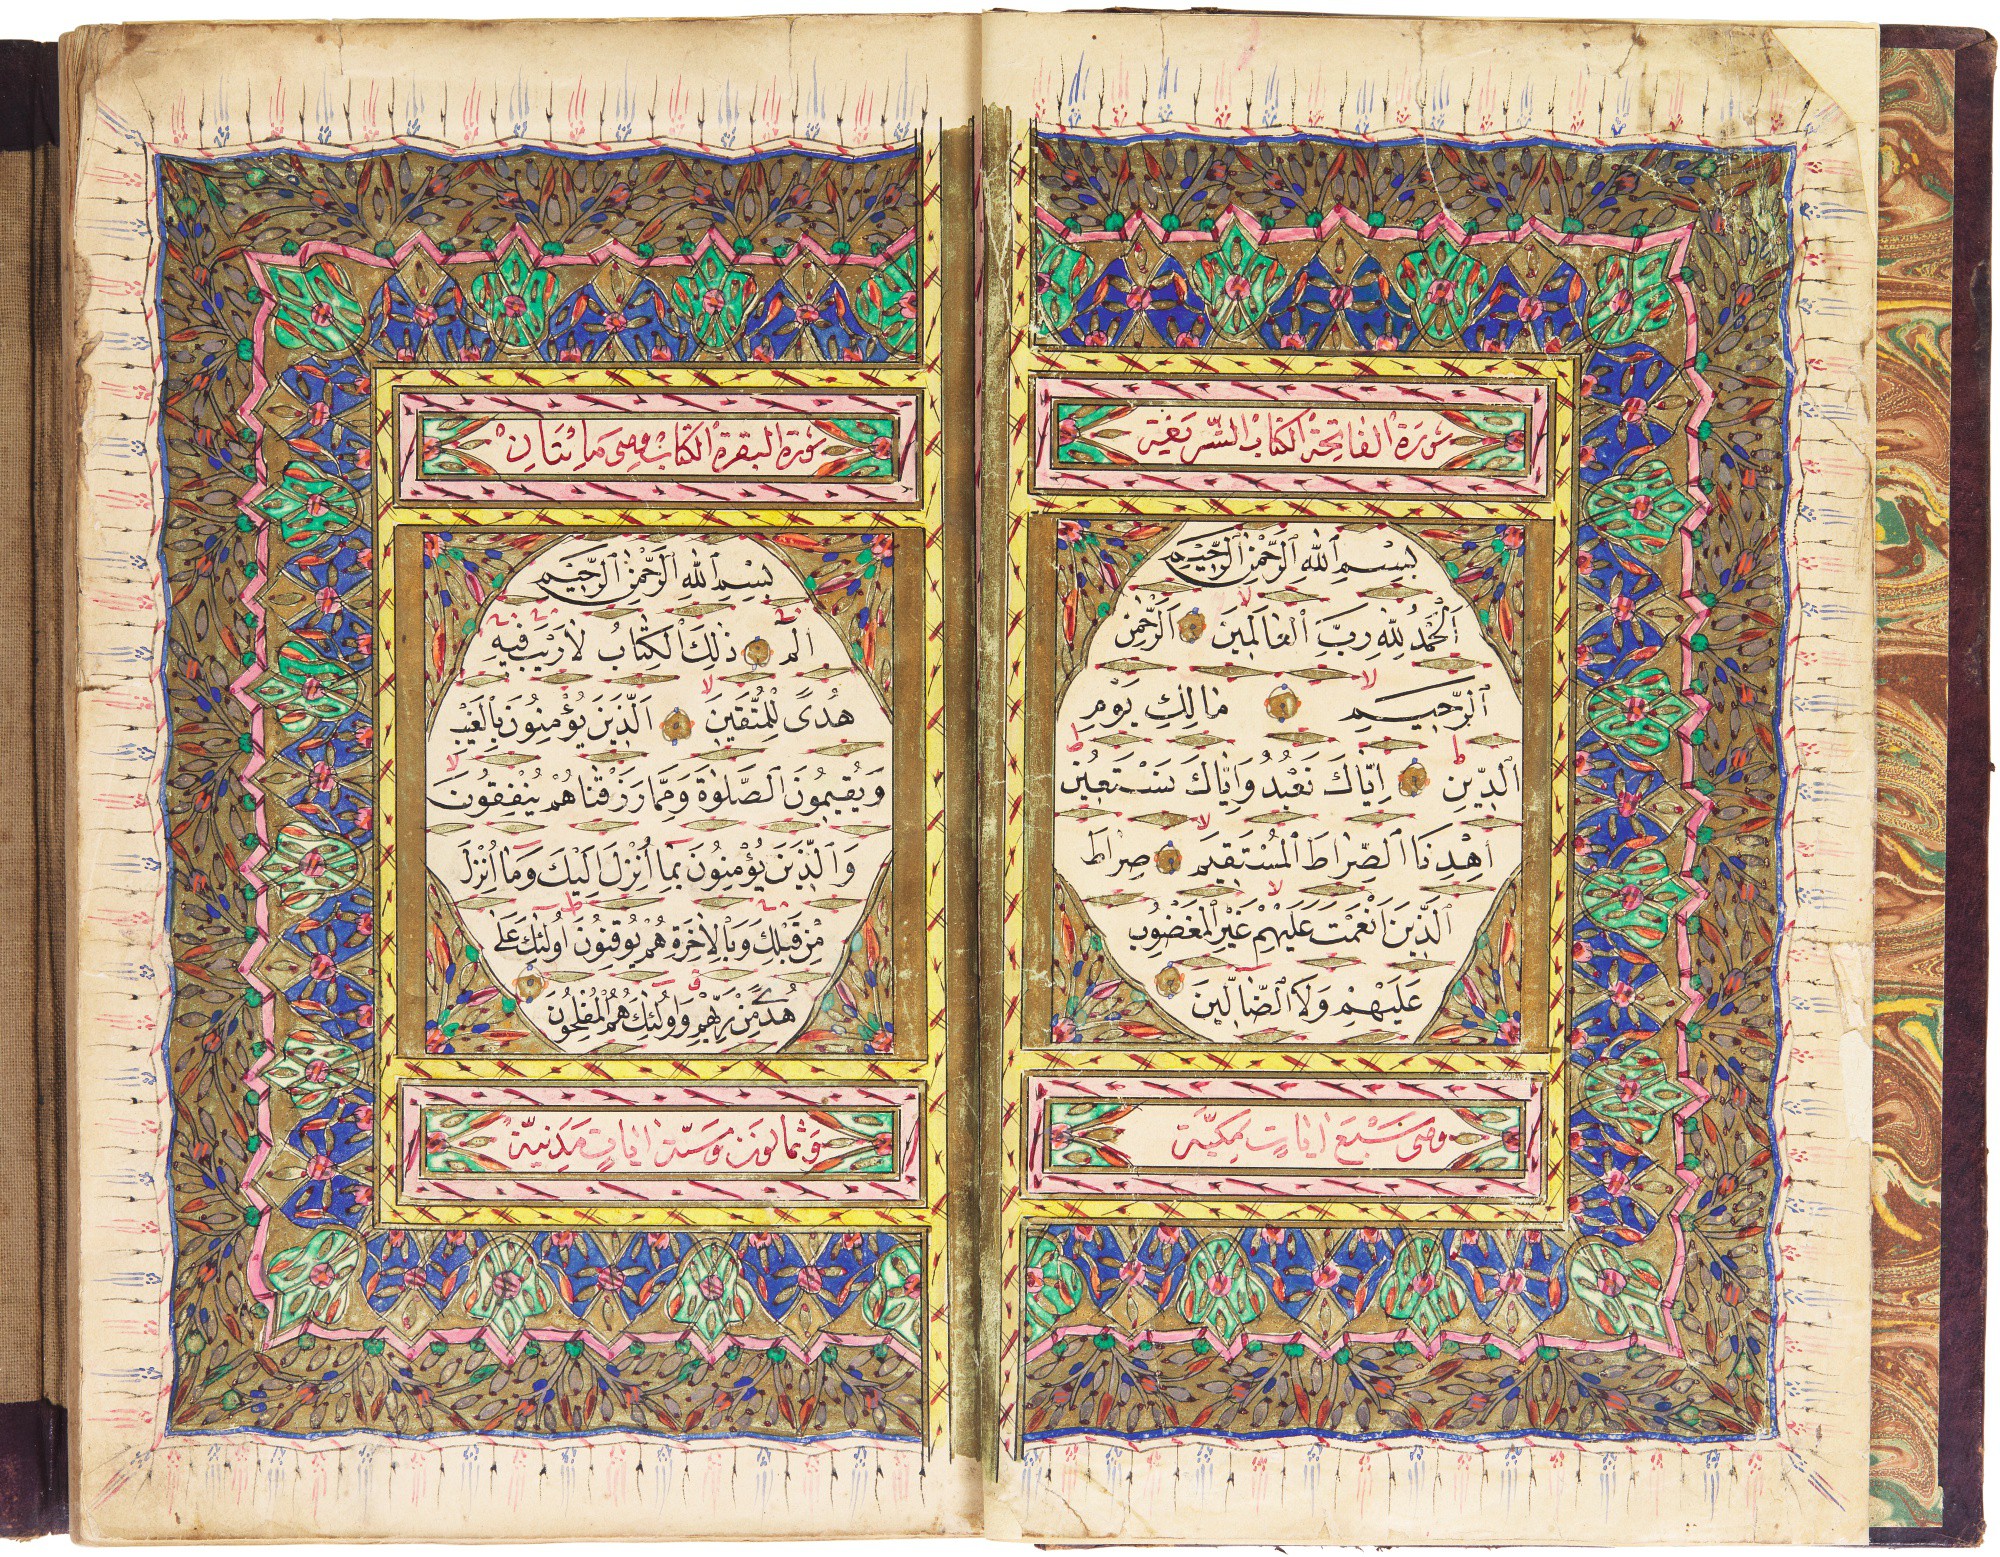 سورة الفاتحة الكتاب الشريفة
بِسْمِ اللهِ الرَّحْمٰنِ الرَّحِيمِ
اَلْحَمْدُ لِلّٰهِ رَبِّ الْعَالَمِينَ الرَّحْمٰنِ
الرَّحِيمِ مَالِكِ يَوْمِ
الدِّينِ اِيَّاكَ نَعْبُدُ وَاِيَّاكَ نَسْتَعِينُ
اِهْدِنَا الصِّرَاطَ الْمُسْتَقِيمَ صِرَاطَ
الَّذِينَ اَنْعَمْتَ عَلَيْهِمْ غَيْرِ الْمَغْضُوبِ
عَلَيْهِمْ وَلَا الضَّالِّينَ
وهى سَبْعَ اٰيَاتٍ مَكِّيَّة
سورة البقرة الكتاب وهى مأتان
بِسْمِ اللهِ الرَّحْمٰنِ الرَّحِيمِ
الٓمٓ ذٰلِكَ الْكِتَابُ لَا رَيْبَ فِيهِ
هُدًى لِلْمُتَّقِينَ الَّذِينَ يُؤْمِنُونَ بِالْغَيْبِ
وَيُقِيمُونَ الصَّلٰوةَ وَمِمَّا رَزَقْنَاهُمْ يُنْفِقُونَ
وَالَّذِينَ يُؤْمِنُونَ بِمَا اُنْزِلَ اِلَيْكَ وَمَا اُنْزِلَ
مِنْ قَبْلِكَ وَبِالْاٰخِرَةِ هُمْ يُوقِنُونَ اُولٰئِكَ عَلٰى
هُدًى مِنْ رَبِّهِمْ وَاُولٰئِكَ هُمُ الْمُفْلِحُونَ
وَثمَانون وَستّة اٰيَاتٍ مَدَنِيَّة